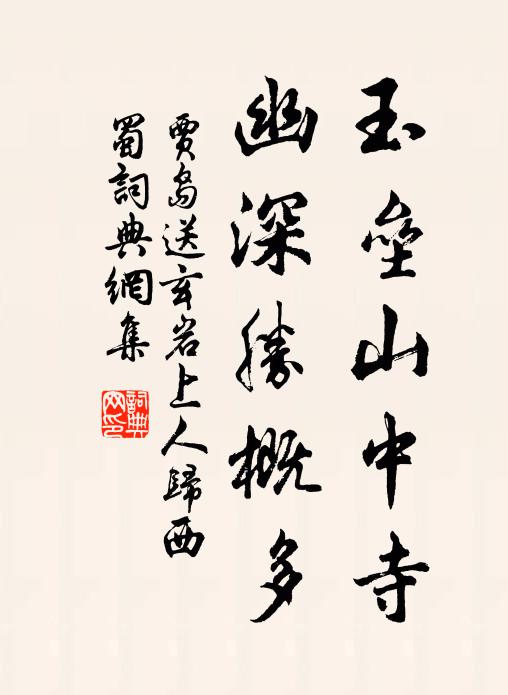 玉壘山中寺
幽深勝概多
賈島送玄岩上人歸西
蜀詞典網集
詞典
网印